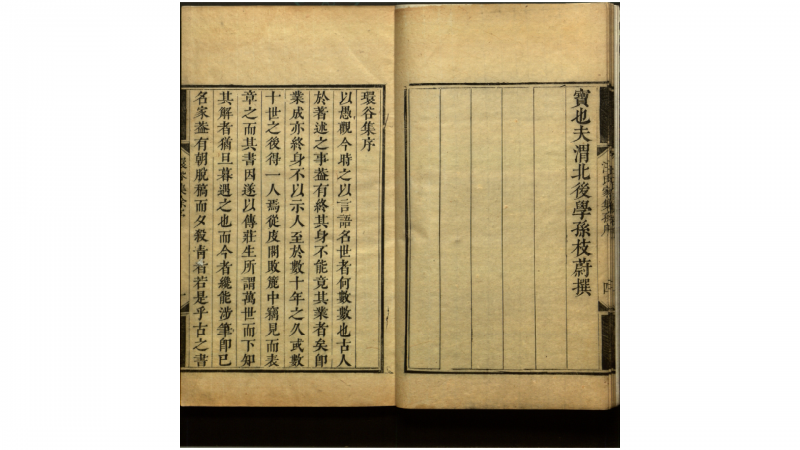 寶也夫渭北後學孫枝蔚撰
環谷集序
以愚觀今時之以言語名世者何數數也古人
於著述之事葢有終其身不能竟其業者矣卽
業成亦終身不以示人至於數十年之久或數
十世之後得一人焉從皮閣敗簏中竊見而表
章之而其書因遂以傳莊生所謂萬世而下知
其解者猶旦暮遇之也而今者纔能涉筆卽已
名家葢有朝脫稿而夕殺青者若是乎古之書